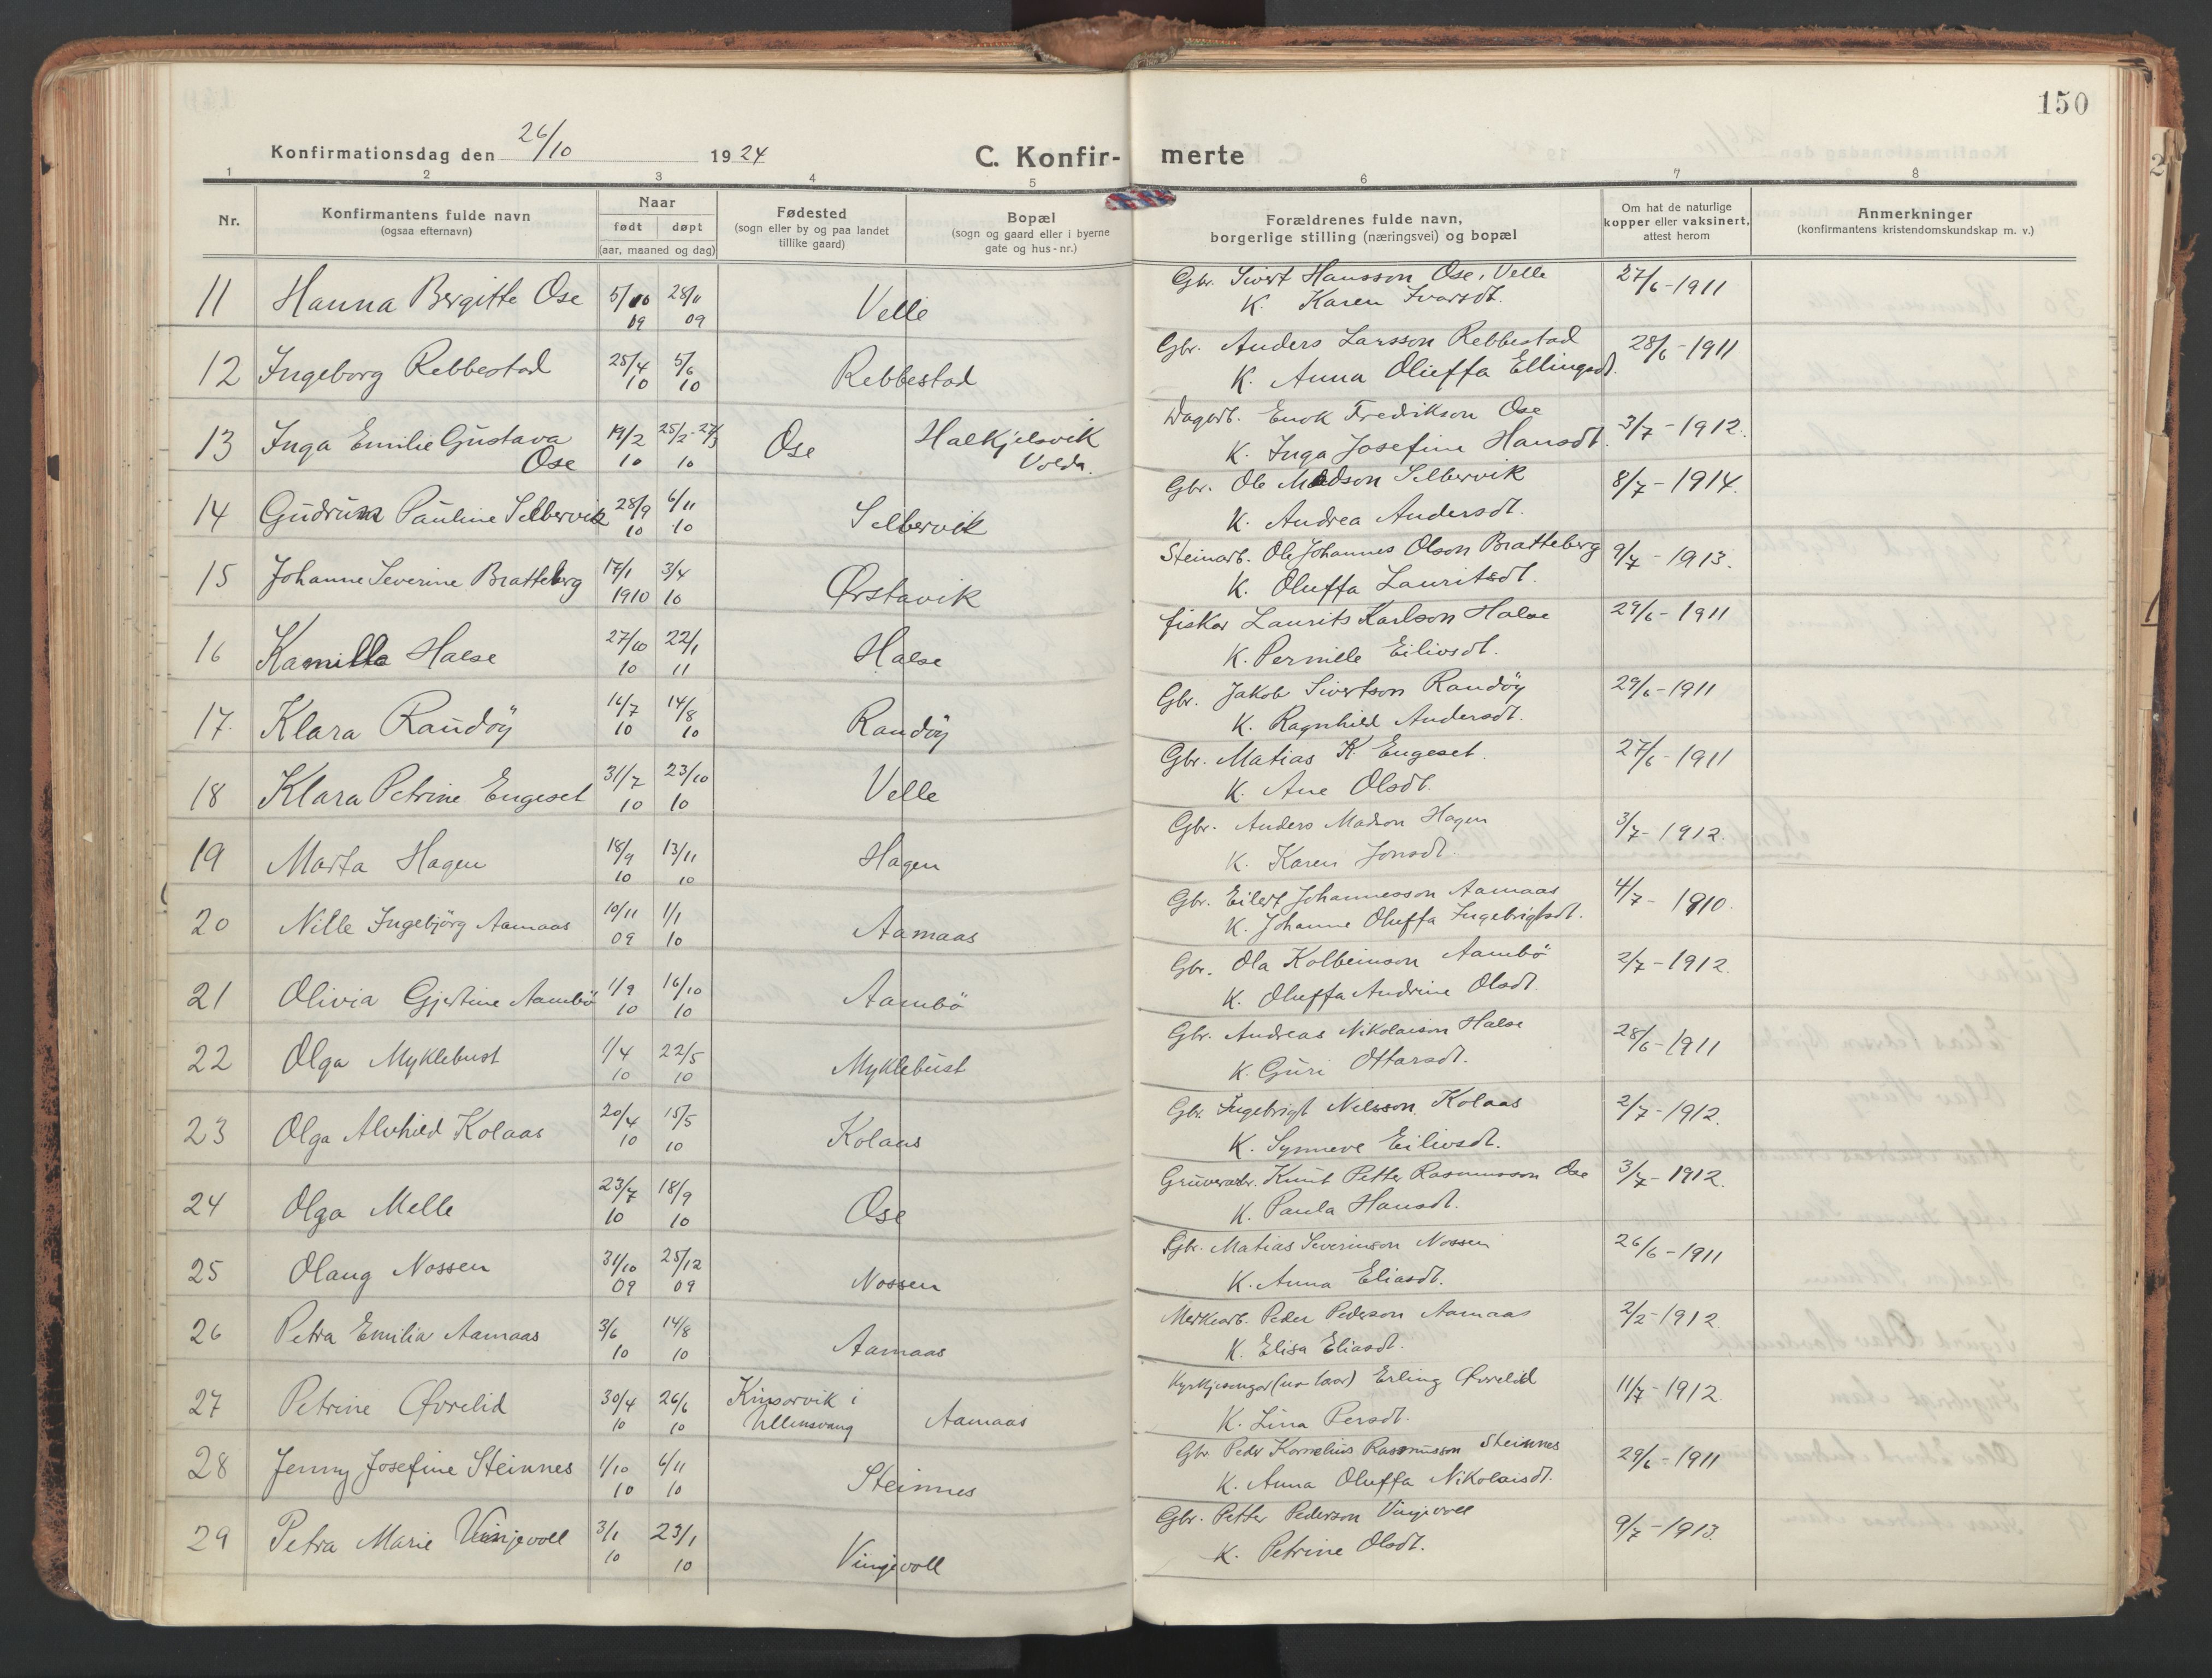 150
Konfirmationsdag den 26/10 1924 C. Konfir- merte
1 2 3 4 5 6 7 8
Nr. Konfirmantens fulde navn (ogsaa efternavn) Naar født døpt (aar, maaned og dag) Fødested (sogn eller by og paa landet tillike gaard) Bopæl (sogn og gaard eller i byerne gate og hus-nr.) Forældrenes fulde navn, borgerlige stilling (næringsvei) og bopæl Om hat de naturlige kopper eller vaksinert, attest herom Anmerkninger (konfirmantens kristendomskundskap m. v.)
11 Hanna Bergitte Ose 5/10 09 28/11 09 Velle Gbr. Sivert Hansson Ose, Velle 27/6-1911
K. Karen Ivarsdt.
12 Ingeborg Rebbestad 25/4 10 5/6 10 Rebbestad Gbr. Anders Larsson Rebbestad 28/6-1911
K. Anna Olieffa Ellingsdt.
13 Inga Emilie Gustava Ose 19/2 10 25/2-27/3 10 Ose Halkjelsvik Volda. Dagarb. Enok Fredrikson Ose 3/7-1912.
K. Inga Josefine Hansdt.
14 Gudrun Pauline Selbervik 28/9 10 6/11 10 Selbervik Gbr. Ole Madson Selbervik 8/7-1914.
K. Andrea Andersdt.
15 Johanne Severine Bratteberg 17/1 1910 3/4 10 Ørstavik Steinarb. Ole Johannes Olson Bratteberg 9/7-1913.
K. Oluffa Lauritsdt.
16 Kamilla Halse 27/10 10 22/1 11 Halse fiskar Laurits Karlson Halse 29/6-1911
K. Pernille Eilivsdt.
17. Klara Raudöy 16/7 10 14/8 10 Raudöy Gbr. Jakob Sivertson Raudöy 29/6-1911
K. Ragnhild Andersdt.
18 Klara Petrine Engeset 31/7 10 23/10 10 Velle Gbr. Matias K. Engeset. 27/6-1911
K. Ane Olsdt.
19 Marta Hagen 18/9 10 13/11 10 Hagen Gbr. Anders Madson Hagen 3/7-1912.
K. Karen Jonsdt.
20 Nille Ingebjörg Aamaas 10/11 09 1/1 10 Aamaas Gbr. Eilert Johannesson Aamaas 4/7-1910.
K. Johanne Oluffa Ingebrigtsdt.
21 Olivia Gjertine Aambö 1/9 10 16/10 10 Aambö Gbr. Ola Kolbeinson Aambö 2/7-1912.
K. Oluffa Andrine Olsdt.
22 Olga Myklebust 1/4 10 22/5 10 Myklebust Gbr. Andreas Nikolaison Halse 28/6-1911
K. Guri Ottarsdt.
23 Olga Alvhild Kolaas 20/4 10 15/5 10 Kolaas Gbr. Ingebrigt Nilsson Kolaas 2/7-1912.
K. Synneve Eilivsdt.
24 Olga Melle 23/7 10 18/9 10 Ose Gruvearb. Knut Petter Rasmusson Ose 3/7-1912.
K. Paula Hansdt.
25 Olaug Nossen 31/10 09 25/12 09 Nossen Gbr. Matias Severinson Nossen 26/6-1911
K. Anna Eliasdt.
26 Petra Emilia Aamaas 3/6 10 14/8 10 Aamaas Peder Pederson Aamaas 2/2-1912.
K. Elisa Eliasdt.
27 Petrine Øvrelid 30/4 10 26/6 10 Kinsarvik i Ullensvang Aamaas Kyrkjesongar Erling Øvrelid 11/7-1912.
K. Lina Persdt.
28 Jenny Josefine Steinnes 1/10 10 6/11 10 Steinnes Gbr. Peder Kornelius Rasmusson Steinnes 29/6-1911
K. Anna Oluffa Nikolaisdt.
29 Petra Marie Vinjevoll 3/1 10 23/1 10 Vinjevoll Gbr. Petter Pederson Vinjevoll 9/7-1913.
K. Petrine Olsdt.